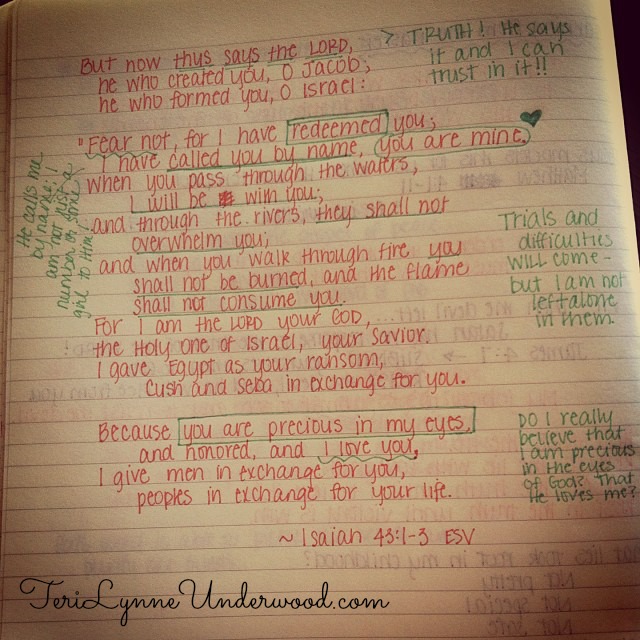 But now thus says the LORD,
he who created you, O Jacob;
he who formed you, O Israel:
> TRUTH! He says
it and I can
trust in it!!
"Fear not, for I have redeemed you;
I have called you by name, you are mine.
when you pass through the waters,
I will be with you;
and through the rivers, they shall not
overwhelm you;
and when you walk through fire you
shall not be burned, and the flame
shall not consume you.
For I am the LORD your GOD,
the Holy one of Israel, your Savior.
I gave Egypt as your ransom,
Cush and Seba in exchange for you.
He calls me
by name. I
am not just a
number or some
girl to Him!
Trials and
difficulties
WILL come -
but I am not
left alone
in them.
Because you are precious in my eyes,
and honored, and I love you,
I give men in exchange for you,
peoples in exchange for your life.
DO I really
believe that
I am precious
in the eyes
of God? That
He loves me?
~ Isaiah 43:1-3 ESV
TeriLynneUnderwood.com